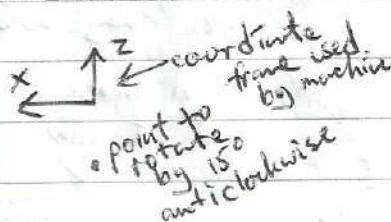 z
x
coordinate
frame used
by machine
point to
rotate
by 150
anticlockwise